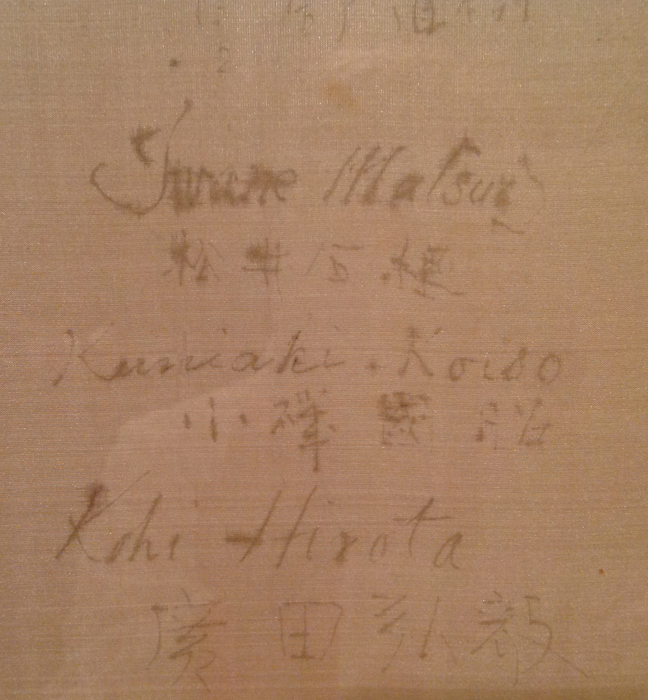 Iwane Matsui
松井石根
Kuniaki Koiso
小磯國昭
Koki Hirota
廣田弘毅